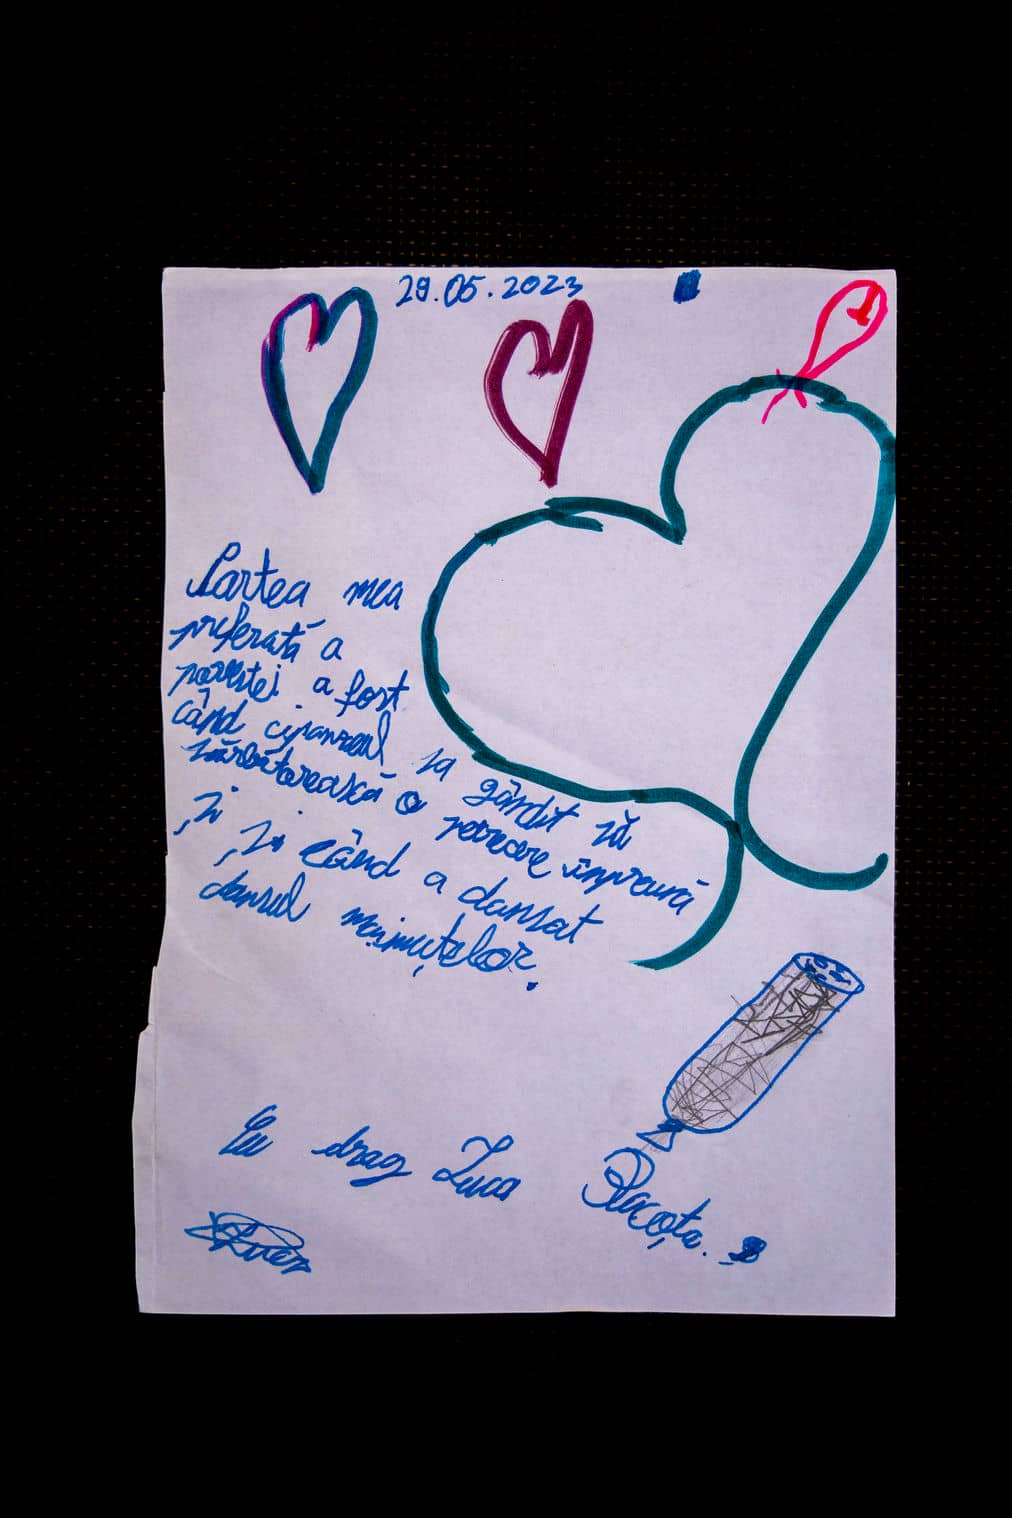 29.05.2023
Partea mea
preferată a
povestei a fost
când cipanzeul sa gândit să
sărbătorească o petrecere împreună
și și când a dansat
dansul maimuțelor.
Cu drag Luca